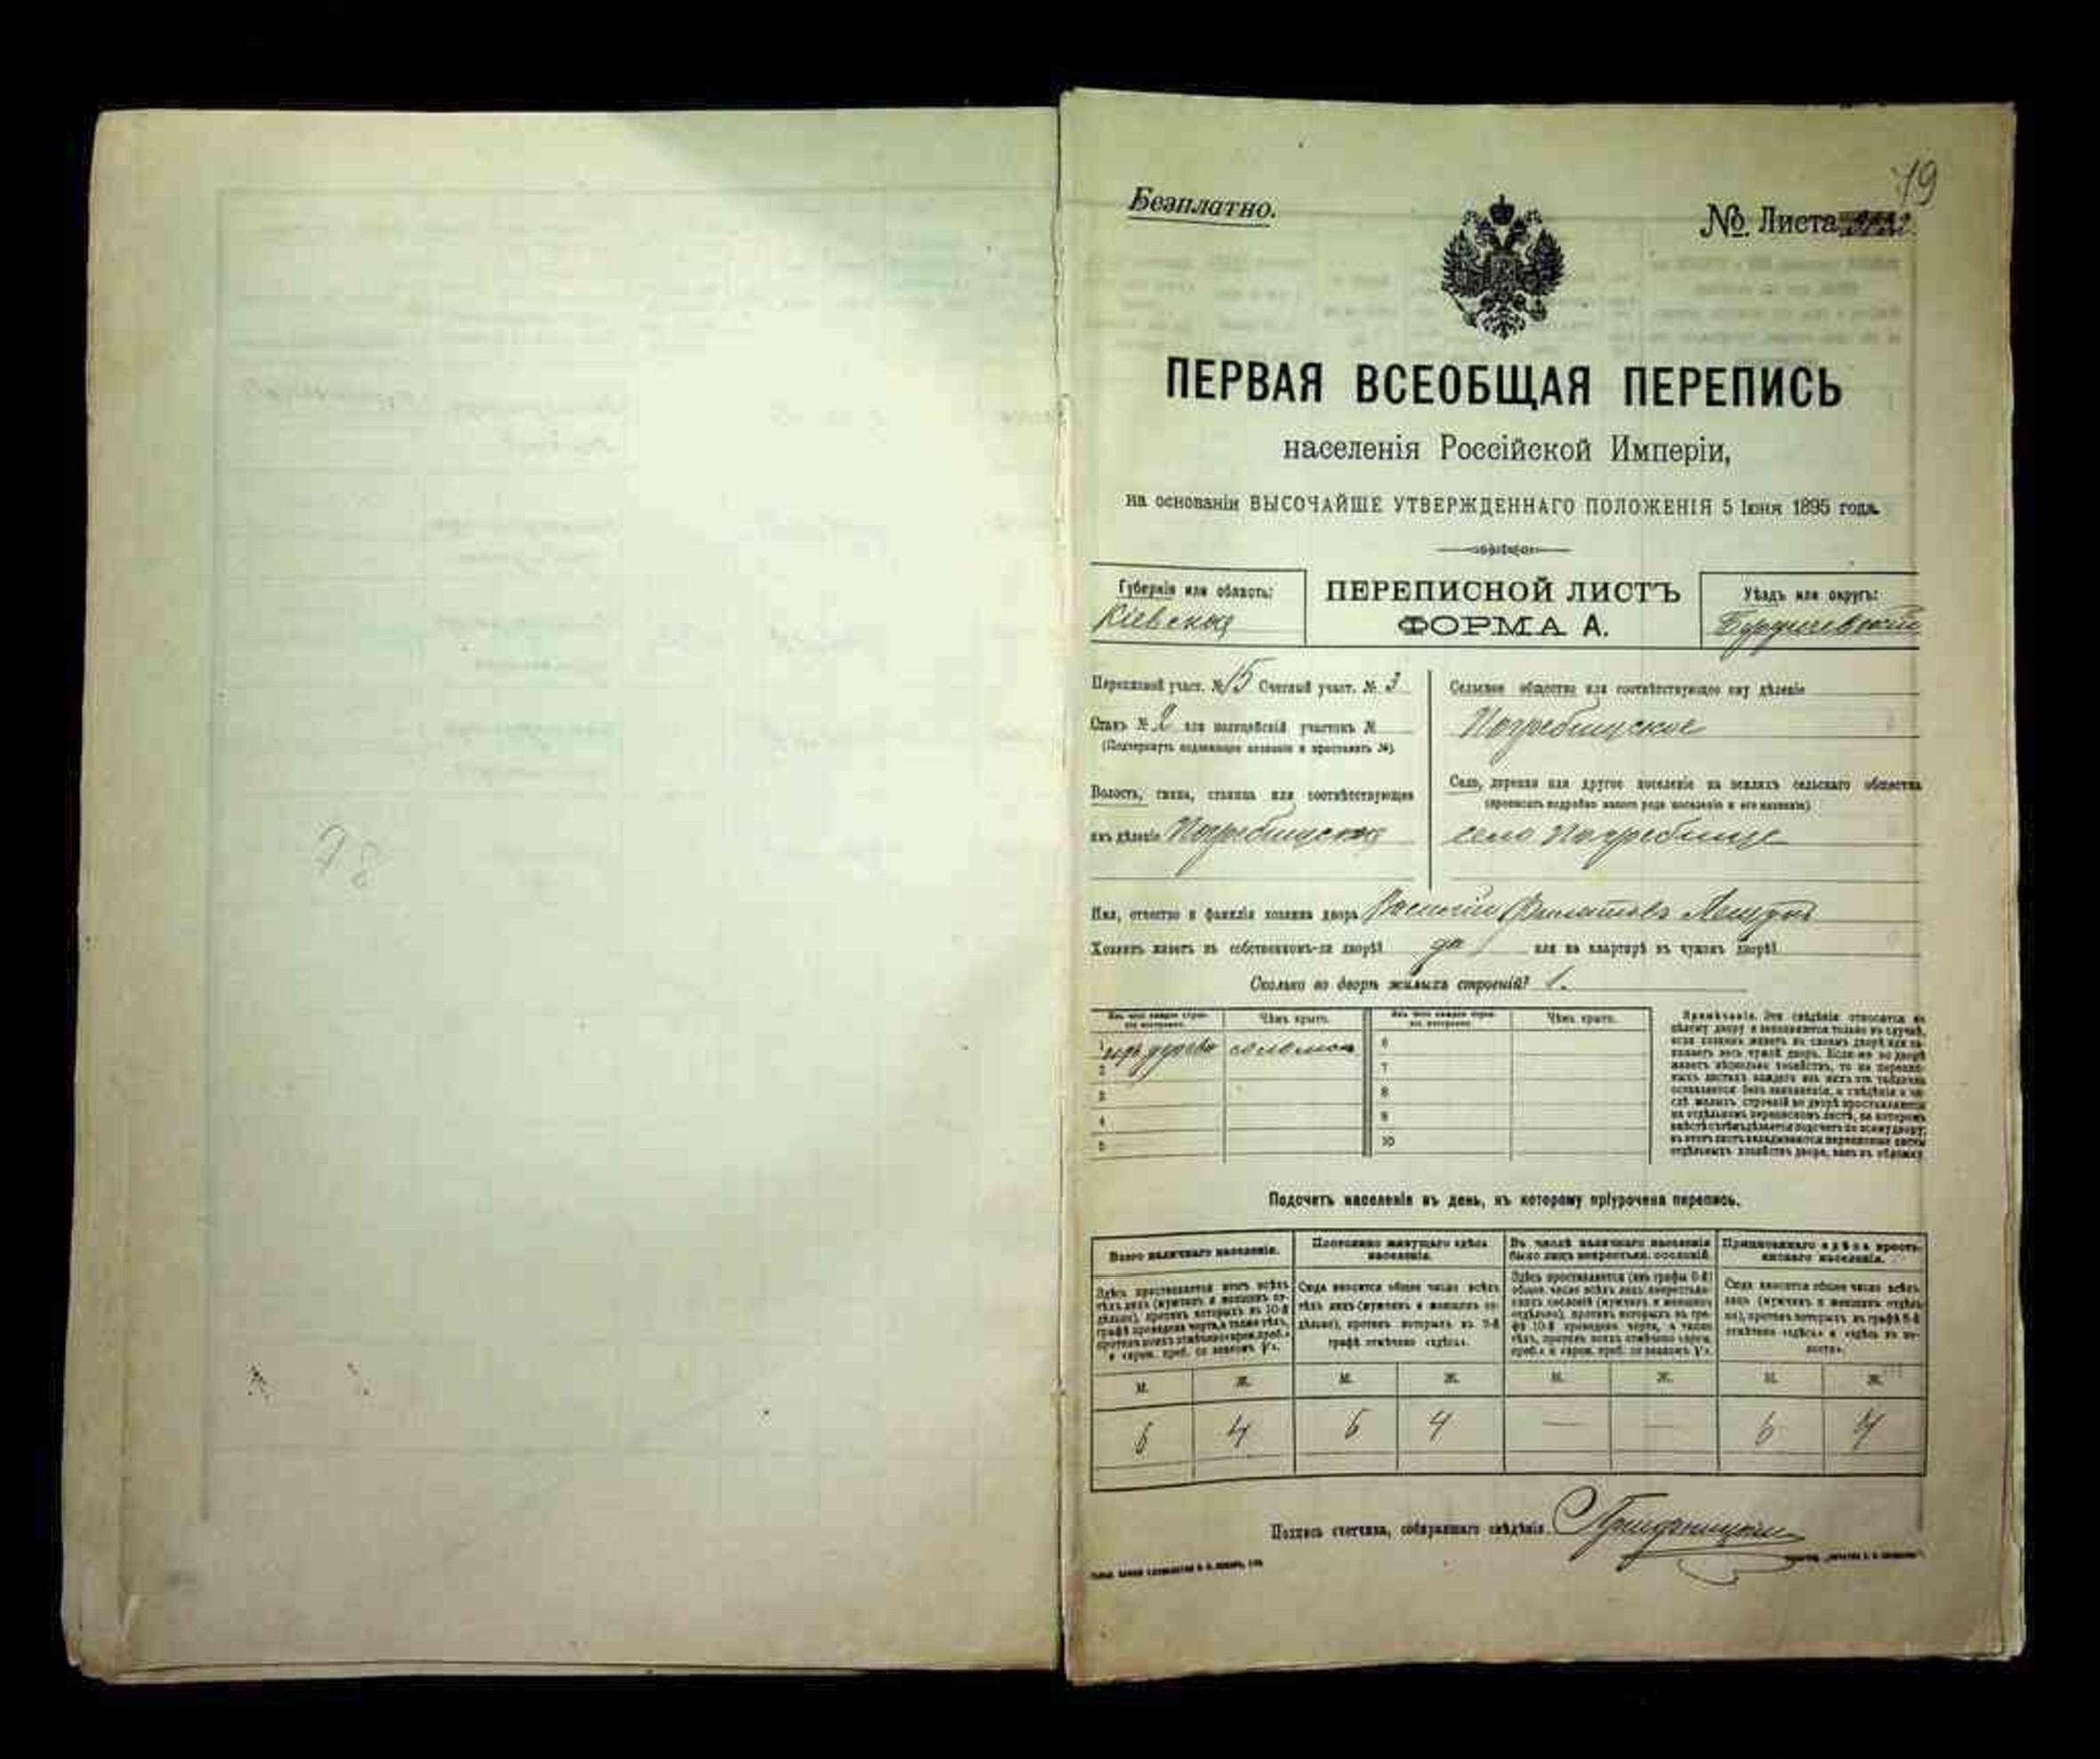 79
Безплатно.
№ Листа
ПЕРВАЯ ВСЕОБЩАЯ ПЕРЕПИСЬ
населенія Россійской Имперіи,
на основаніи ВЫСОЧАЙШЕ УТВЕРЖДЕННАГО ПОЛОЖЕНІЯ 5 Іюня 1895 года.
Губернія или область:
Кіевская
ПЕРЕПИСНОЙ ЛИСТЪ
ФОРМА А.
Уѣздъ или округъ:
Бердичевскій
Переписной участ. № 15 Счетный участ. № 3
Станъ № 2 или полицейскій участокъ №
(Подчеркнуть надлежащее названіе и проставить №).
Волость, гмина, станица или соотвѣтствующее
имъ дѣленіе Погребищская
Сельское общество или соотвѣтствующее ему дѣленіе
Погребищское
Село, деревня или другое поселеніе на земляхъ сельскаго общества
(прописать подробно какого рода поселеніе и его названіе)
село Погребище
Имя, отчество и фамилія хозяина двора
Хозяинъ живетъ въ собственномъ-ли дворѣ? да или на квартирѣ въ чужомъ дворѣ?
Сколько во дворѣ жилыхъ строеній? 1.
Изъ чего каждое строеніе построено.
Чѣмъ крыто.
Изъ чего каждое строеніе построено.
Чѣмъ крыто.
1 изъ дерева соломой 6
2 7
3 8
4 9
5 10
Примѣчаніе. Эти свѣдѣнія относятся къ
цѣлому двору и заполняются только въ случаѣ,
если хозяинъ живетъ въ своемъ дворѣ или за-
нимаетъ весь чужой дворъ. Если-же во дворѣ
живетъ нѣсколько хозяйствъ, то на перепис-
ныхъ листахъ каждаго изъ нихъ эта табличка
оставляется безъ заполненія, а свѣдѣнія о чи-
слѣ жилыхъ строеній во дворѣ проставляются
на отдѣльномъ переписномъ листѣ, на которомъ
вмѣстѣ съ тѣмъ дѣлается подсчетъ по всему двору;
въ этотъ листъ вкладываются переписные листы
отдѣльныхъ хозяйствъ двора, какъ въ обложку.
Подсчетъ населенія въ день, къ которому пріурочена перепись.
Всего наличнаго населенія.
Постоянно живущаго здѣсь
населенія.
Въ числѣ наличнаго населенія
было лицъ некрестьян. сословій.
Приписаннаго здѣсь кресть-
янскаго населенія.
Здѣсь проставляется итогъ всѣхъ
тѣхъ лицъ (мужчинъ и женщинъ от-
дѣльно), противъ которыхъ въ 10-й
графѣ проведена черта, а также тѣхъ,
противъ коихъ отмѣчено «врем. преб.»
и «врем. преб. со знакомъ V».
Сюда вносится общее число всѣхъ
тѣхъ лицъ (мужчинъ и женщинъ от-
дѣльно), противъ которыхъ въ 9-й
графѣ отмѣчено «здѣсь».
Здѣсь проставляется (изъ графы 6-й)
общее число всѣхъ лицъ некрестьян-
скихъ сословій (мужчинъ и женщинъ
отдѣльно), противъ которыхъ въ гра-
фѣ 10-й проведена черта, а также
тѣхъ, противъ коихъ отмѣчено «врем.
преб.» и «врем. преб. со знакомъ V».
Сюда вносится общее число всѣхъ
лицъ (мужчинъ и женщинъ отдѣль-
но), противъ которыхъ въ графѣ 8-й
отмѣчено «здѣсь» и «здѣсь въ во-
лости».
М. Ж. М. Ж. М. Ж. М. Ж.
6 4 6 4 — — 6 4
Подпись счетчика, собиравшаго свѣдѣнія